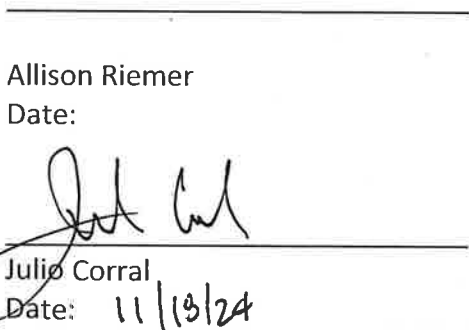 Allison Riemer
Date:
Julio Corral
Date: 11/13/24